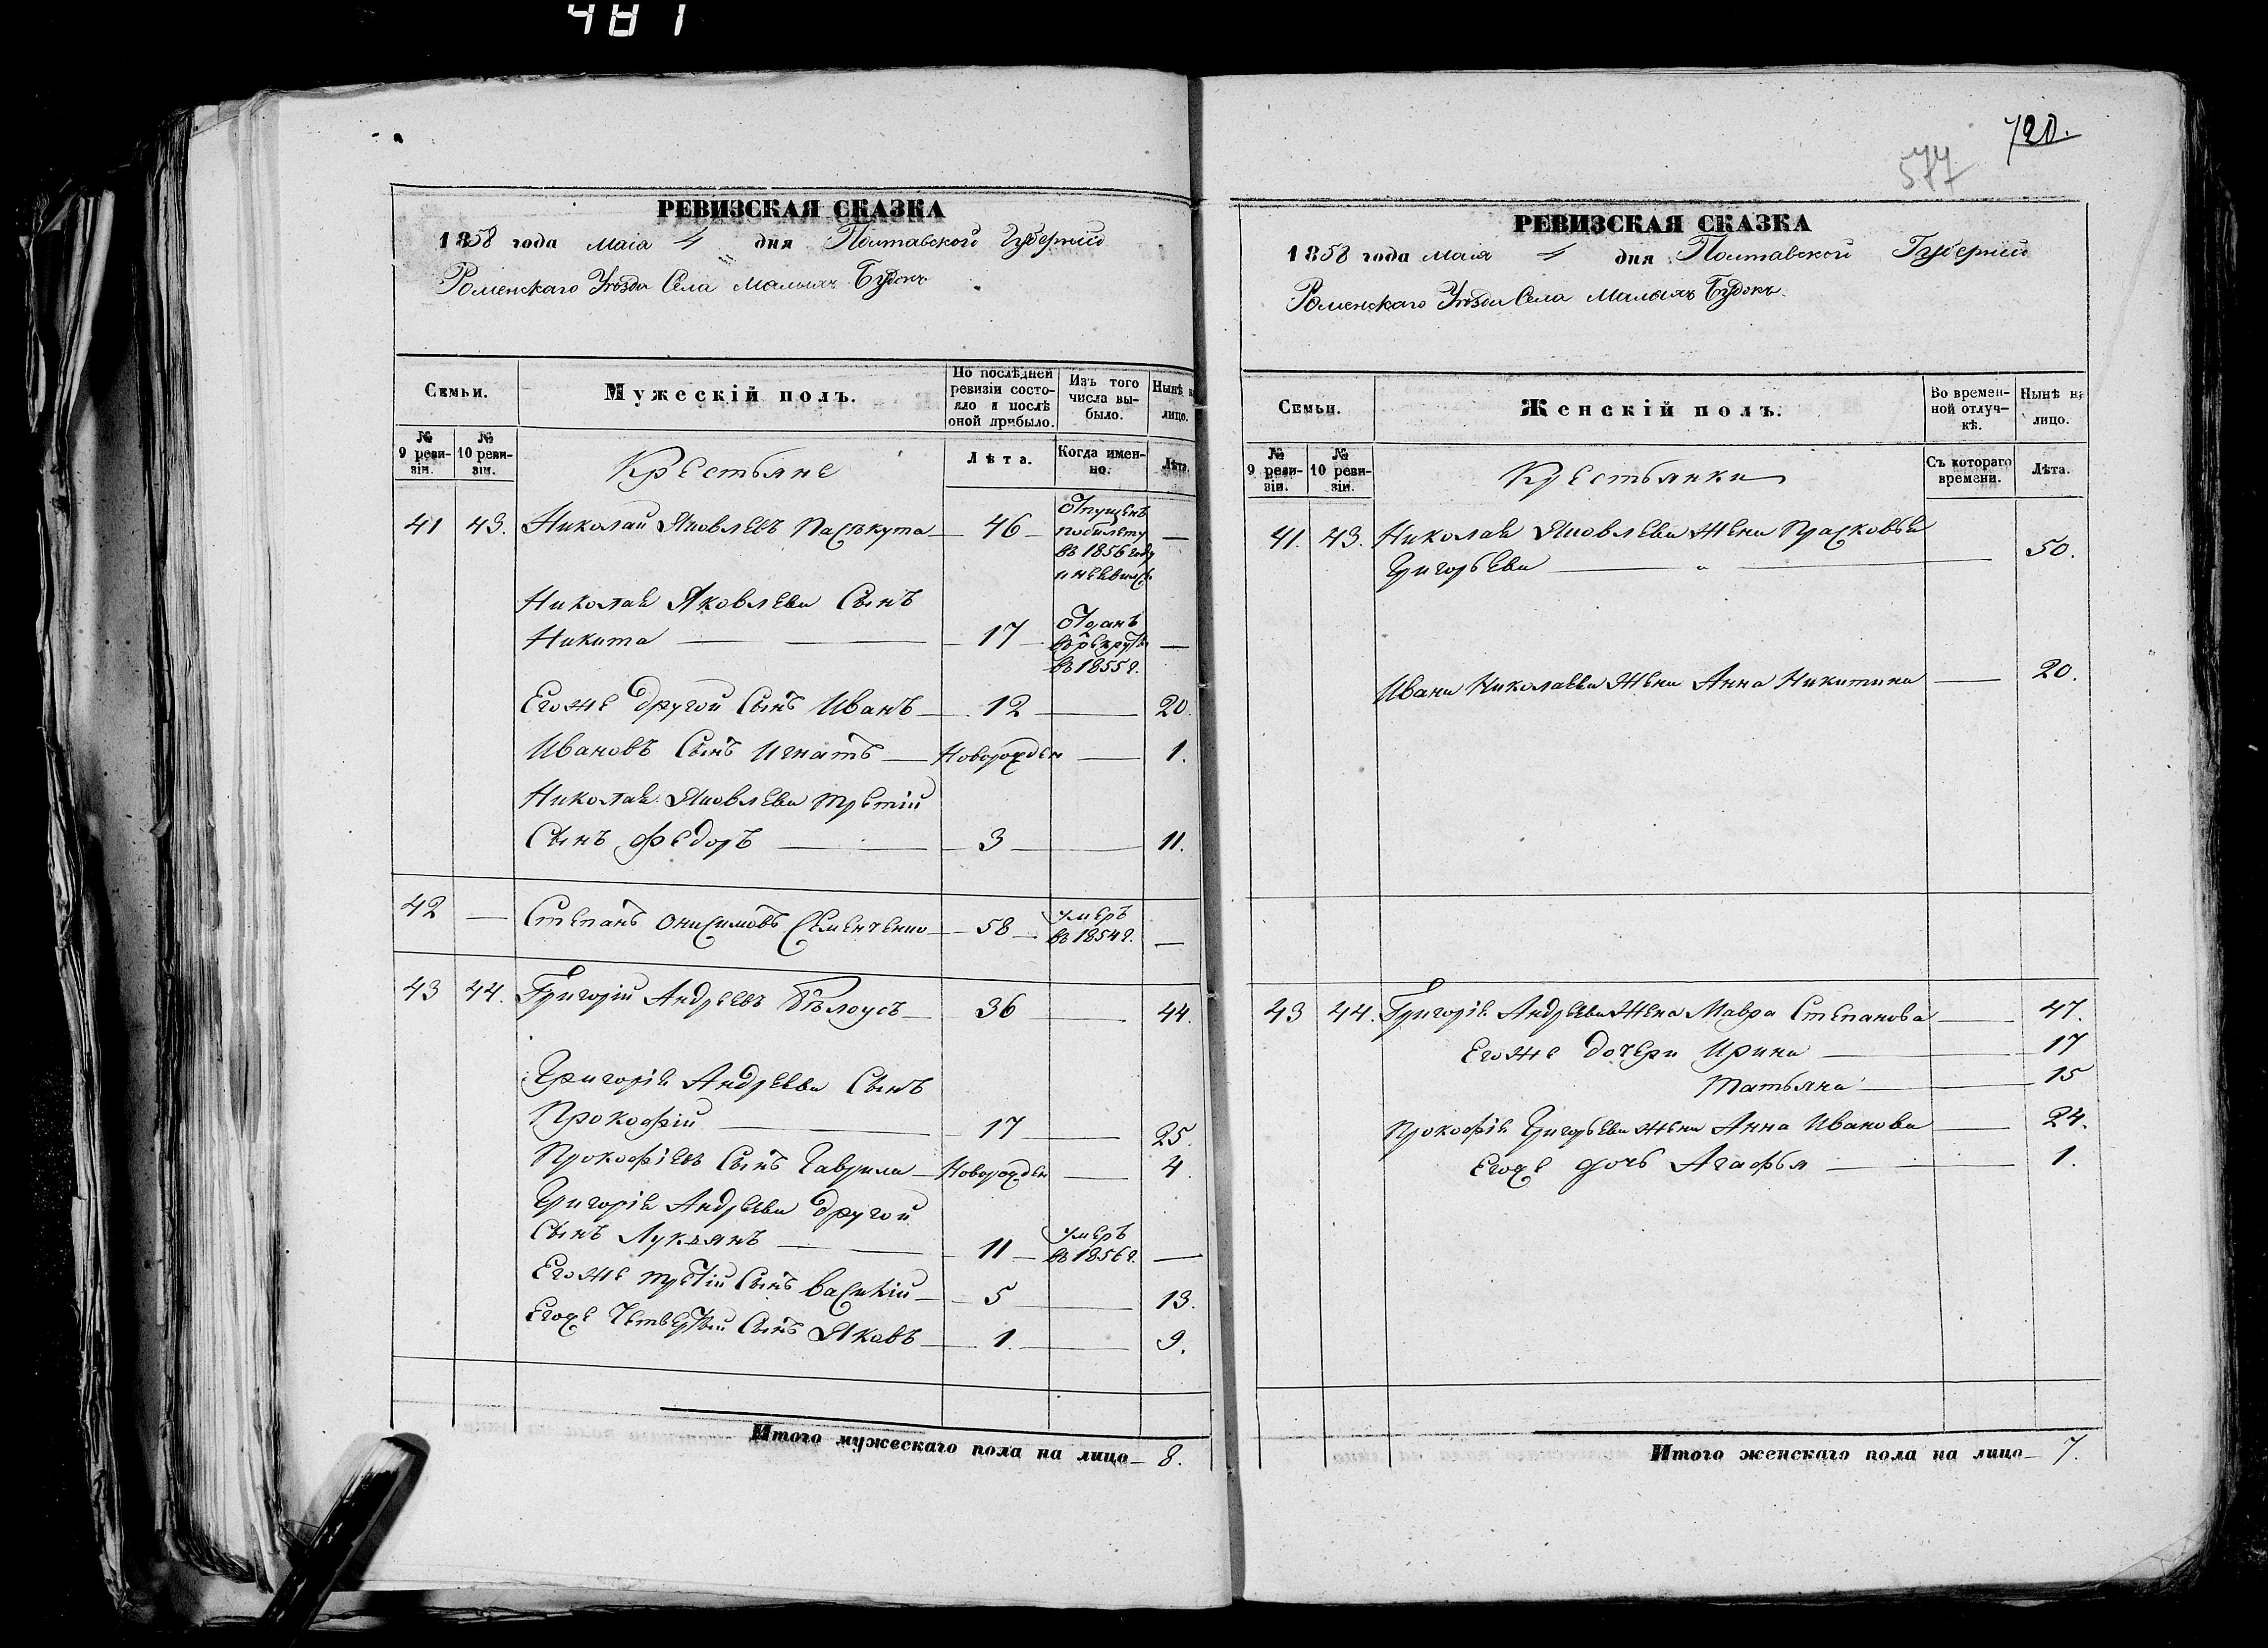 481
РЕВИЗСКАЯ СКАЗКА
1858 года маія 4 дня Полтавской Губерніи
Роменскаго Уѣзда Села Малыхъ Будокъ
Семьи.
Мужескій полъ.
По послѣдней ревизіи состояло и послѣ оной прибыло.
Изъ того числа выбыло.
Нынѣ на лицо.
№ 9 ревизіи.
№ 10 ревизіи.
Крестьяне
Лѣта.
Когда именно.
Лѣта.
41 43. Николай Яковлевъ Пасѣкута 46 Отпущенъ
побилету
въ 1856 году
и неявился
Николая Яковлева Сынъ
Никита 17 Отданъ
въ рекруты
въ 1855 г.
Егоже другой Сынъ Иванъ 12 20.
Ивановъ Сынъ Игнатъ Новорожден 1.
Николая Яковлева третій
Сынъ Федоръ 3 11.
42 — Степанъ Онисимовъ Семенченко 58 умеръ
въ 1854 г.
43 44. Григорій Андреевъ Бѣлоусъ 36 44.
Григорія Андреева Сынъ
Прокофій 17 25.
Прокофіевъ Сынъ Гаврила Новорожден 4.
Григорія Андреева другой
Сынъ Лукьянъ 11 умеръ
въ 1856 г.
Егоже третій Сынъ Василій 5 13.
Егоже Четвертый Сынъ Яковъ 1. 9.
Итого мужескаго пола на лицо 8.
720.
577
РЕВИЗСКАЯ СКАЗКА
1858 года маія 4 дня Полтавской Губерніи
Роменскаго Уѣзда Села Малыхъ Будокъ.
Семьи.
Женскій полъ.
Во временной отлучкѣ.
Нынѣ на лицо.
№ 9 ревизіи.
№ 10 ревизіи.
Крестьянки
Съ котораго времени.
Лѣта.
41. 43. Николая Яковлева Жена Прасковья
Григорьева 50.
Ивана Николаева Жена Анна Никитина 20.
43 44. Григорія Андреева Жена Мавра Степанова 47.
Егоже дочери Ирина 17
Татьяна 15
Прокофія Григорьева жена Анна Иванова 24.
Егоже дочь Агафья 1.
Итого женскаго пола на лицо 7.